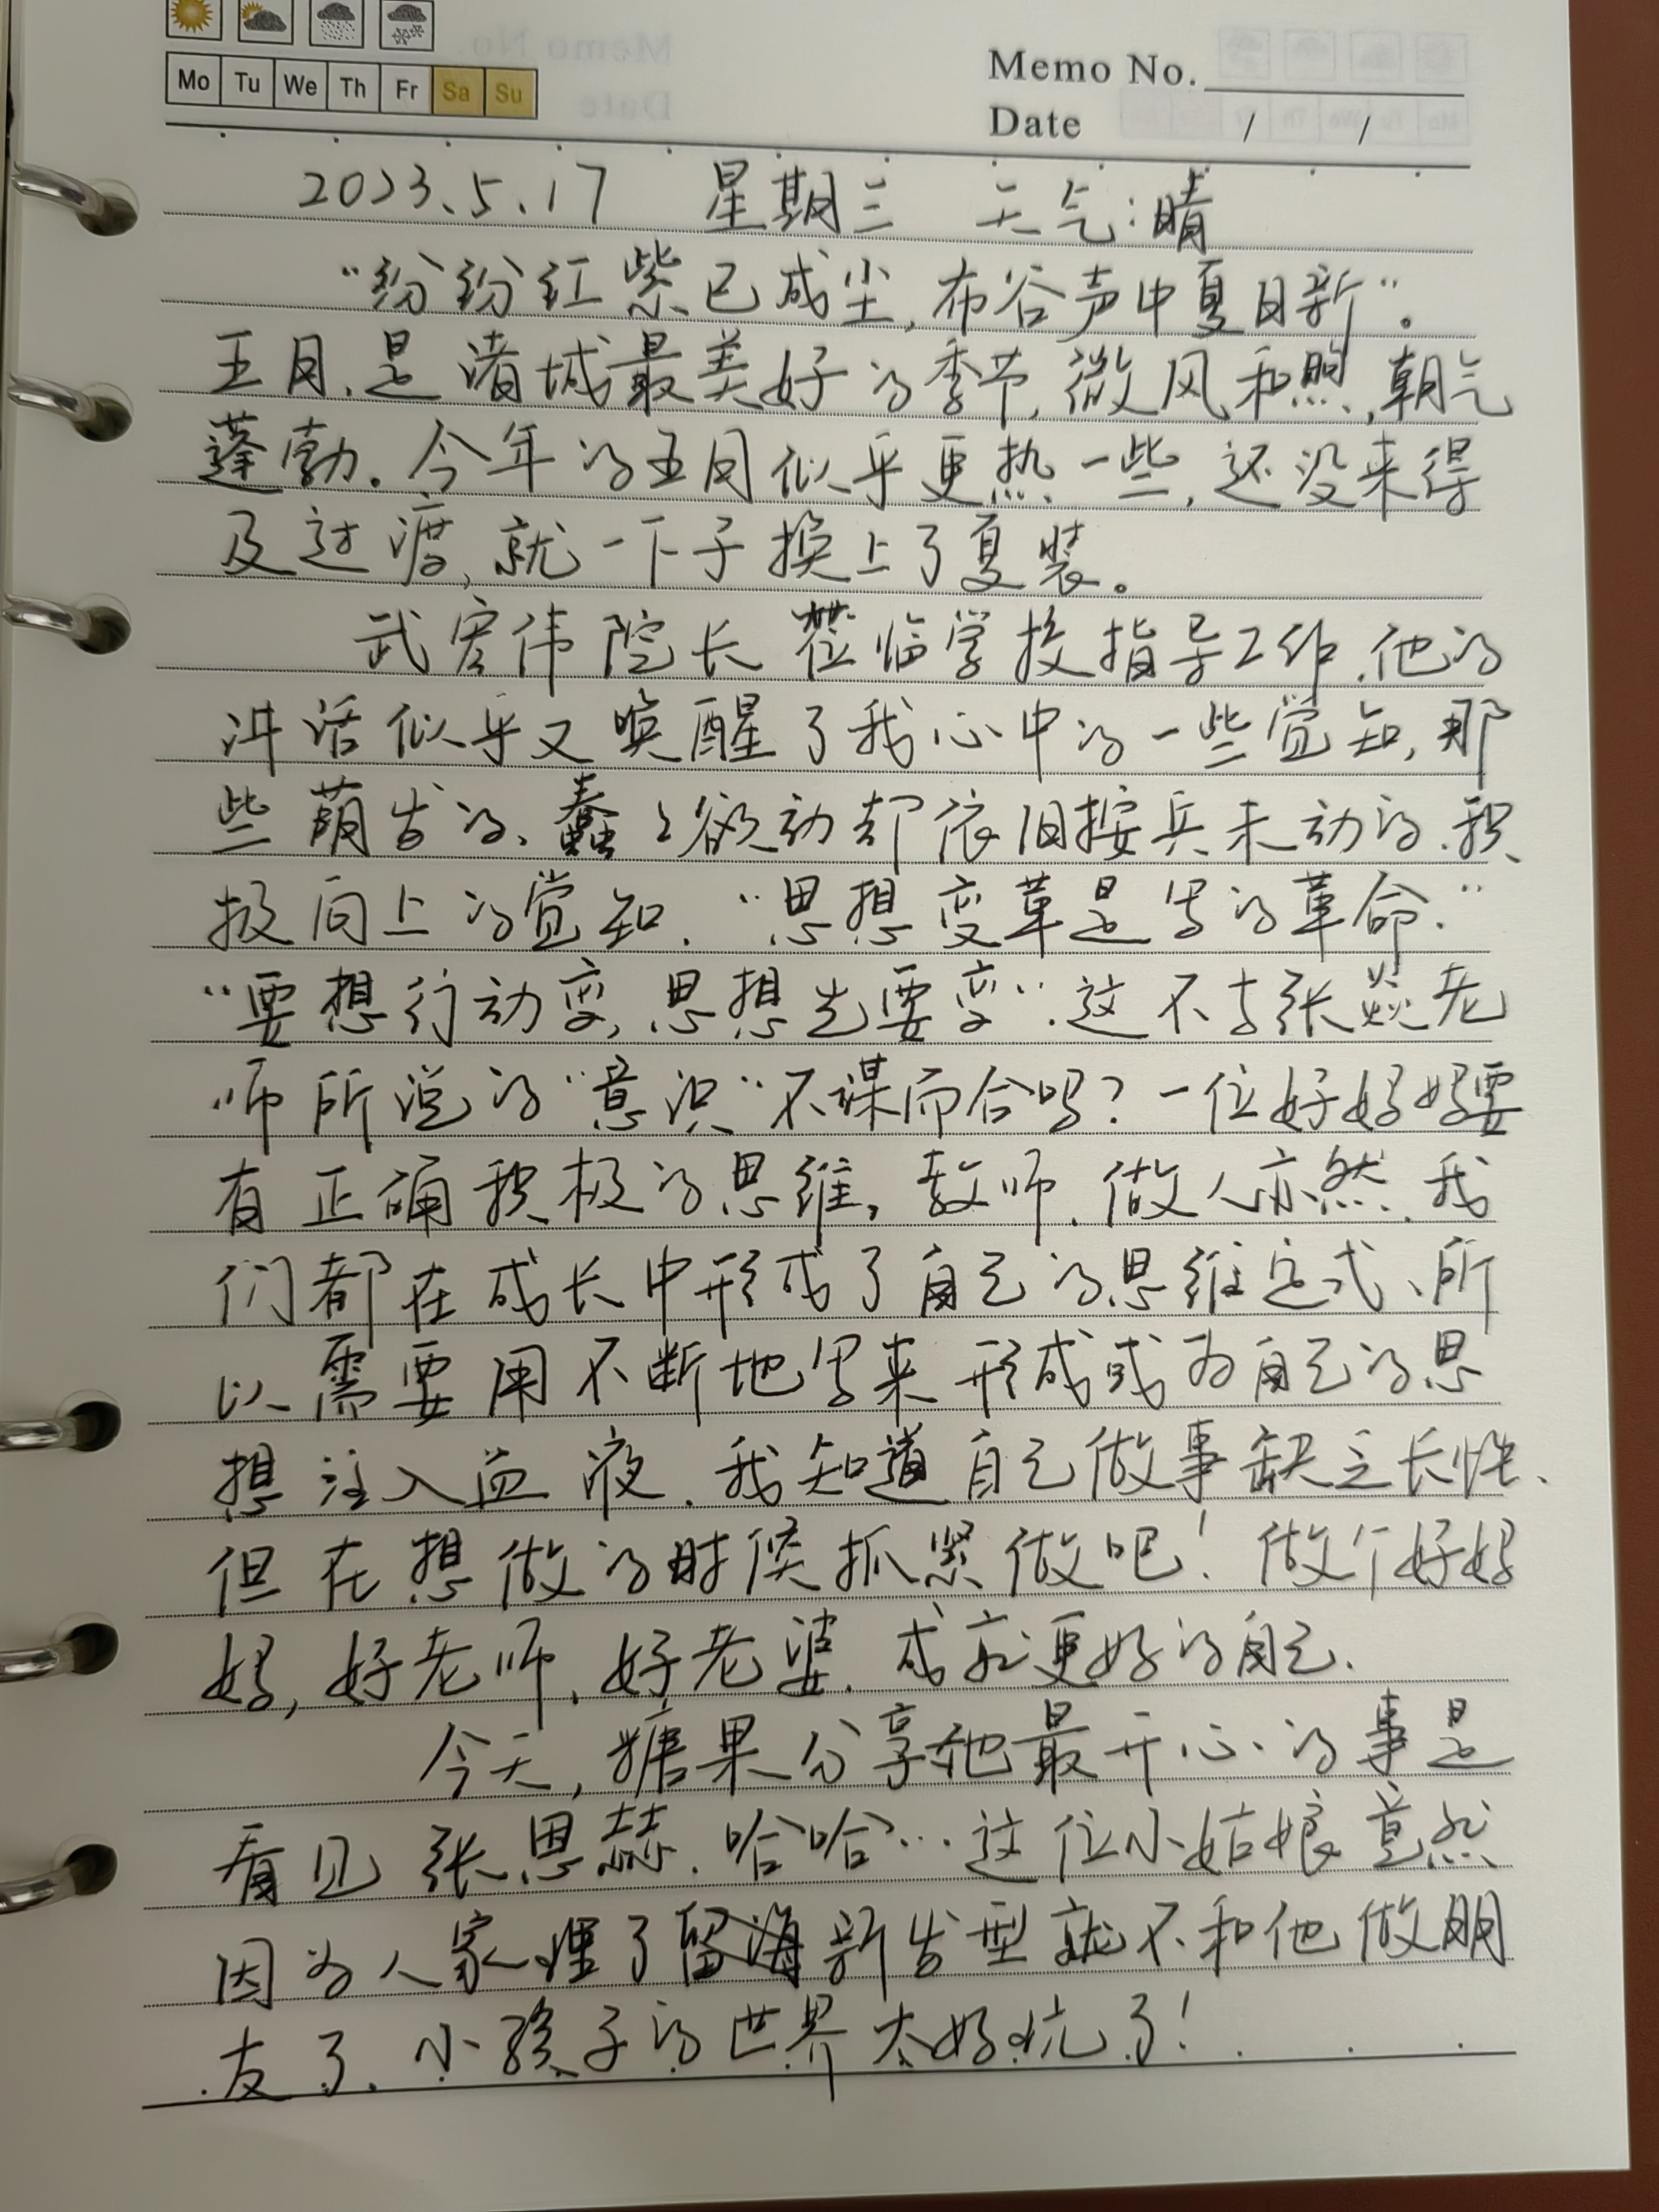 Mo Tu We Th Fr Sa Su
Memo No.
Date / /
2023.5.17 星期三 天气:晴
“纷纷红紫已成尘,布谷声中夏日新”。
五月,是诸城最美好的季节,微风和煦,朝气
蓬勃。今年的五月似乎更热一些,还没来得
及过渡,就一下子换上了夏装。
武宏伟院长莅临学校指导工作.他的
讲话似乎又唤醒了我心中的一些觉知,那
些萌发的、蠢々欲动却依旧按兵未动的.积
极向上的觉知.“思想变革是写的革命.”
“要想行动变,思想先要变”.这不与张焱老
师所说的“意识”不谋而合吗?一位好妈妈要
有正确积极的思维,教师.做人亦然.我
们都在成长中形成了自己的思维定式、所
以需要用不断地写来形成成为自己的思
想注入血液.我知道自己做事缺乏长性、
但在想做的时候抓紧做吧!做个好妈
妈,好老师.好老婆.成就更好的自己.
今天,糖果分享他最开心的事是
看见张思赫.哈哈…这位小姑娘竟然
因为人家理了留海新发型就不和他做朋
友了.小孩子的世界太好玩了!